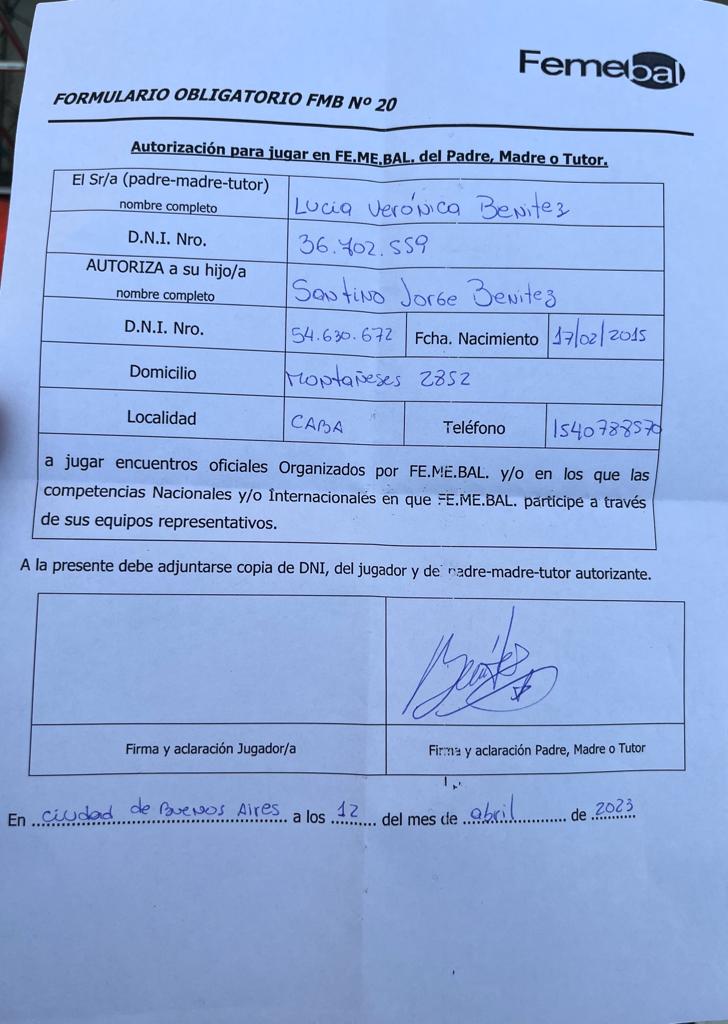 Femebal
FORMULARIO OBLIGATORIO FMB Nº 20
Autorización para jugar en FE.ME.BAL. del Padre, Madre o Tutor.
El Sr/a (padre-madre-tutor)
nombre completo
Lucia Verónica Benitez
D.N.I. Nro.
36.702.559
AUTORIZA a su hijo/a
nombre completo
Santino Jorge Benitez
D.N.I. Nro.
54.630.672
Fcha. Nacimiento
17/02/2015
Domicilio
Montañeses 2852
Localidad
CABA
Teléfono
1540788570
a jugar encuentros oficiales Organizados por FE.ME.BAL. y/o en los que las
competencias Nacionales y/o Internacionales en que FE.ME.BAL. participe a través
de sus equipos representativos.
A la presente debe adjuntarse copia de DNI, del jugador y del padre-madre-tutor autorizante.
Benitez
Firma y aclaración Jugador/a
Firma y aclaración Padre, Madre o Tutor
En ciudad de Buenos Aires a los 12 del mes de abril de 2023